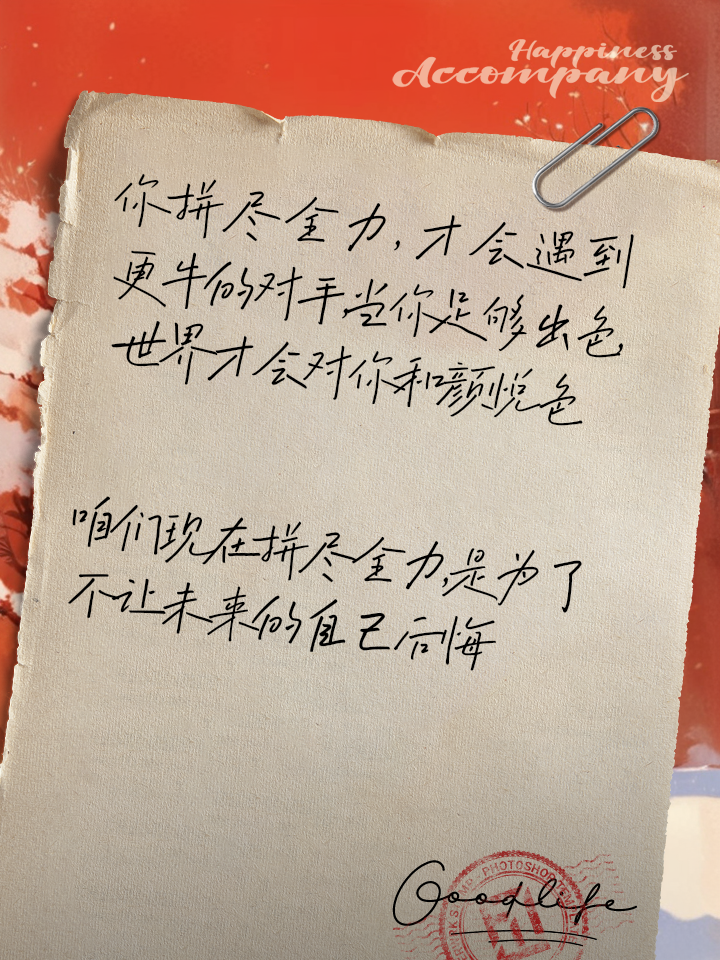 Happiness
Accompany
你拼尽全力,才会遇到
更牛的对手,当你足够出色,
世界才会对你和颜悦色
咱们现在拼尽全力,是为了
不让未来的自己后悔
PHOTOSHOP
Goodlife